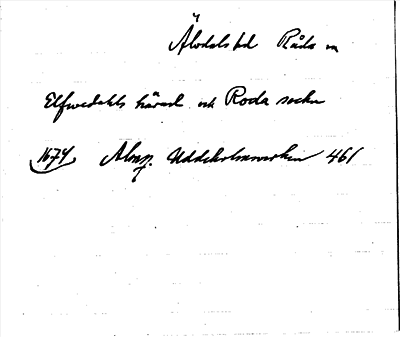 Älvdals hd Råda sn
Elfwedahls härad och Roda sockn
1674 Almqv. Uddeholmsverken 461